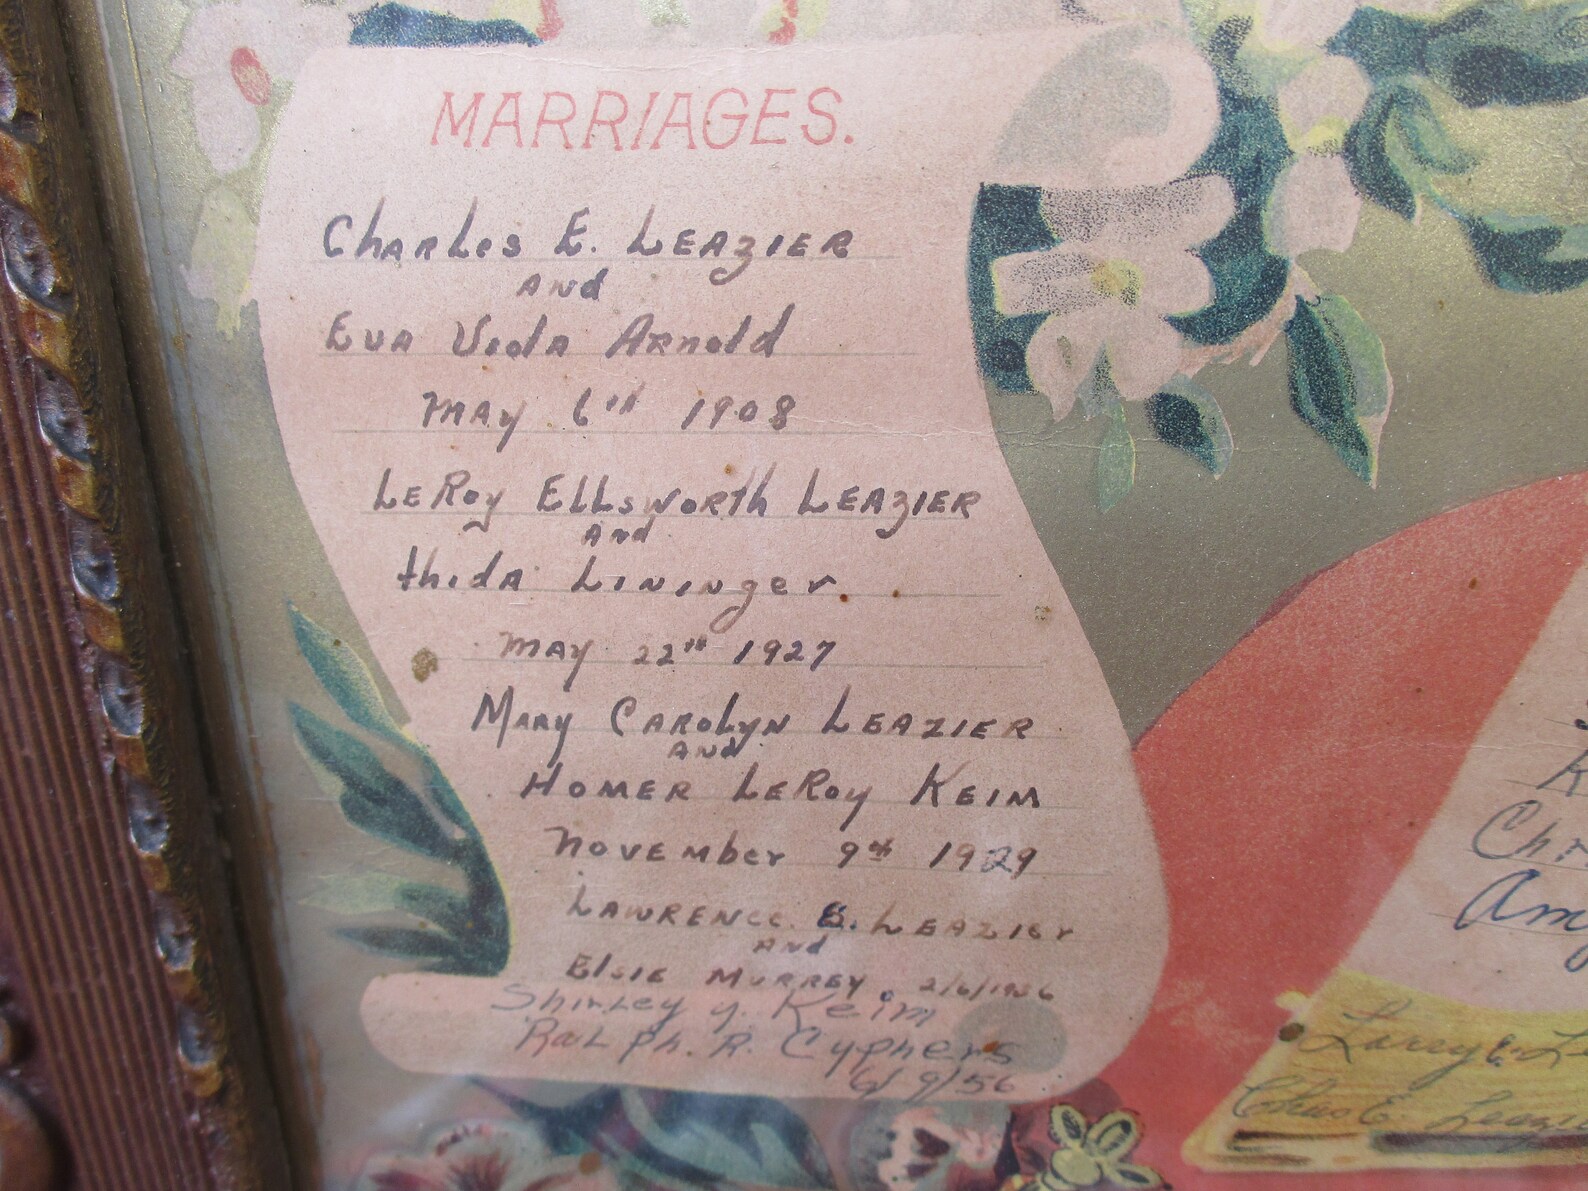 MARRIAGES.
CharLes E. LEAzIER
AND
EVA Viola Arnold
MAY 6th 1908
LeRoy ELLsworth LEAzIER
And
thida Lininger.
MAY 22th 1927
MARY CAROLYN LEAZIER
AND
HOMER LeRoy KEIM
November 9th 1929
LAWRENCE E. LEAZIER
AND
Elsie MURREY 2/6/1936
Shirley y. Keim
RaLph. R. Cyphers
6/9/56
K
Chr
Am
Larry E. L
Chas E. Leazie